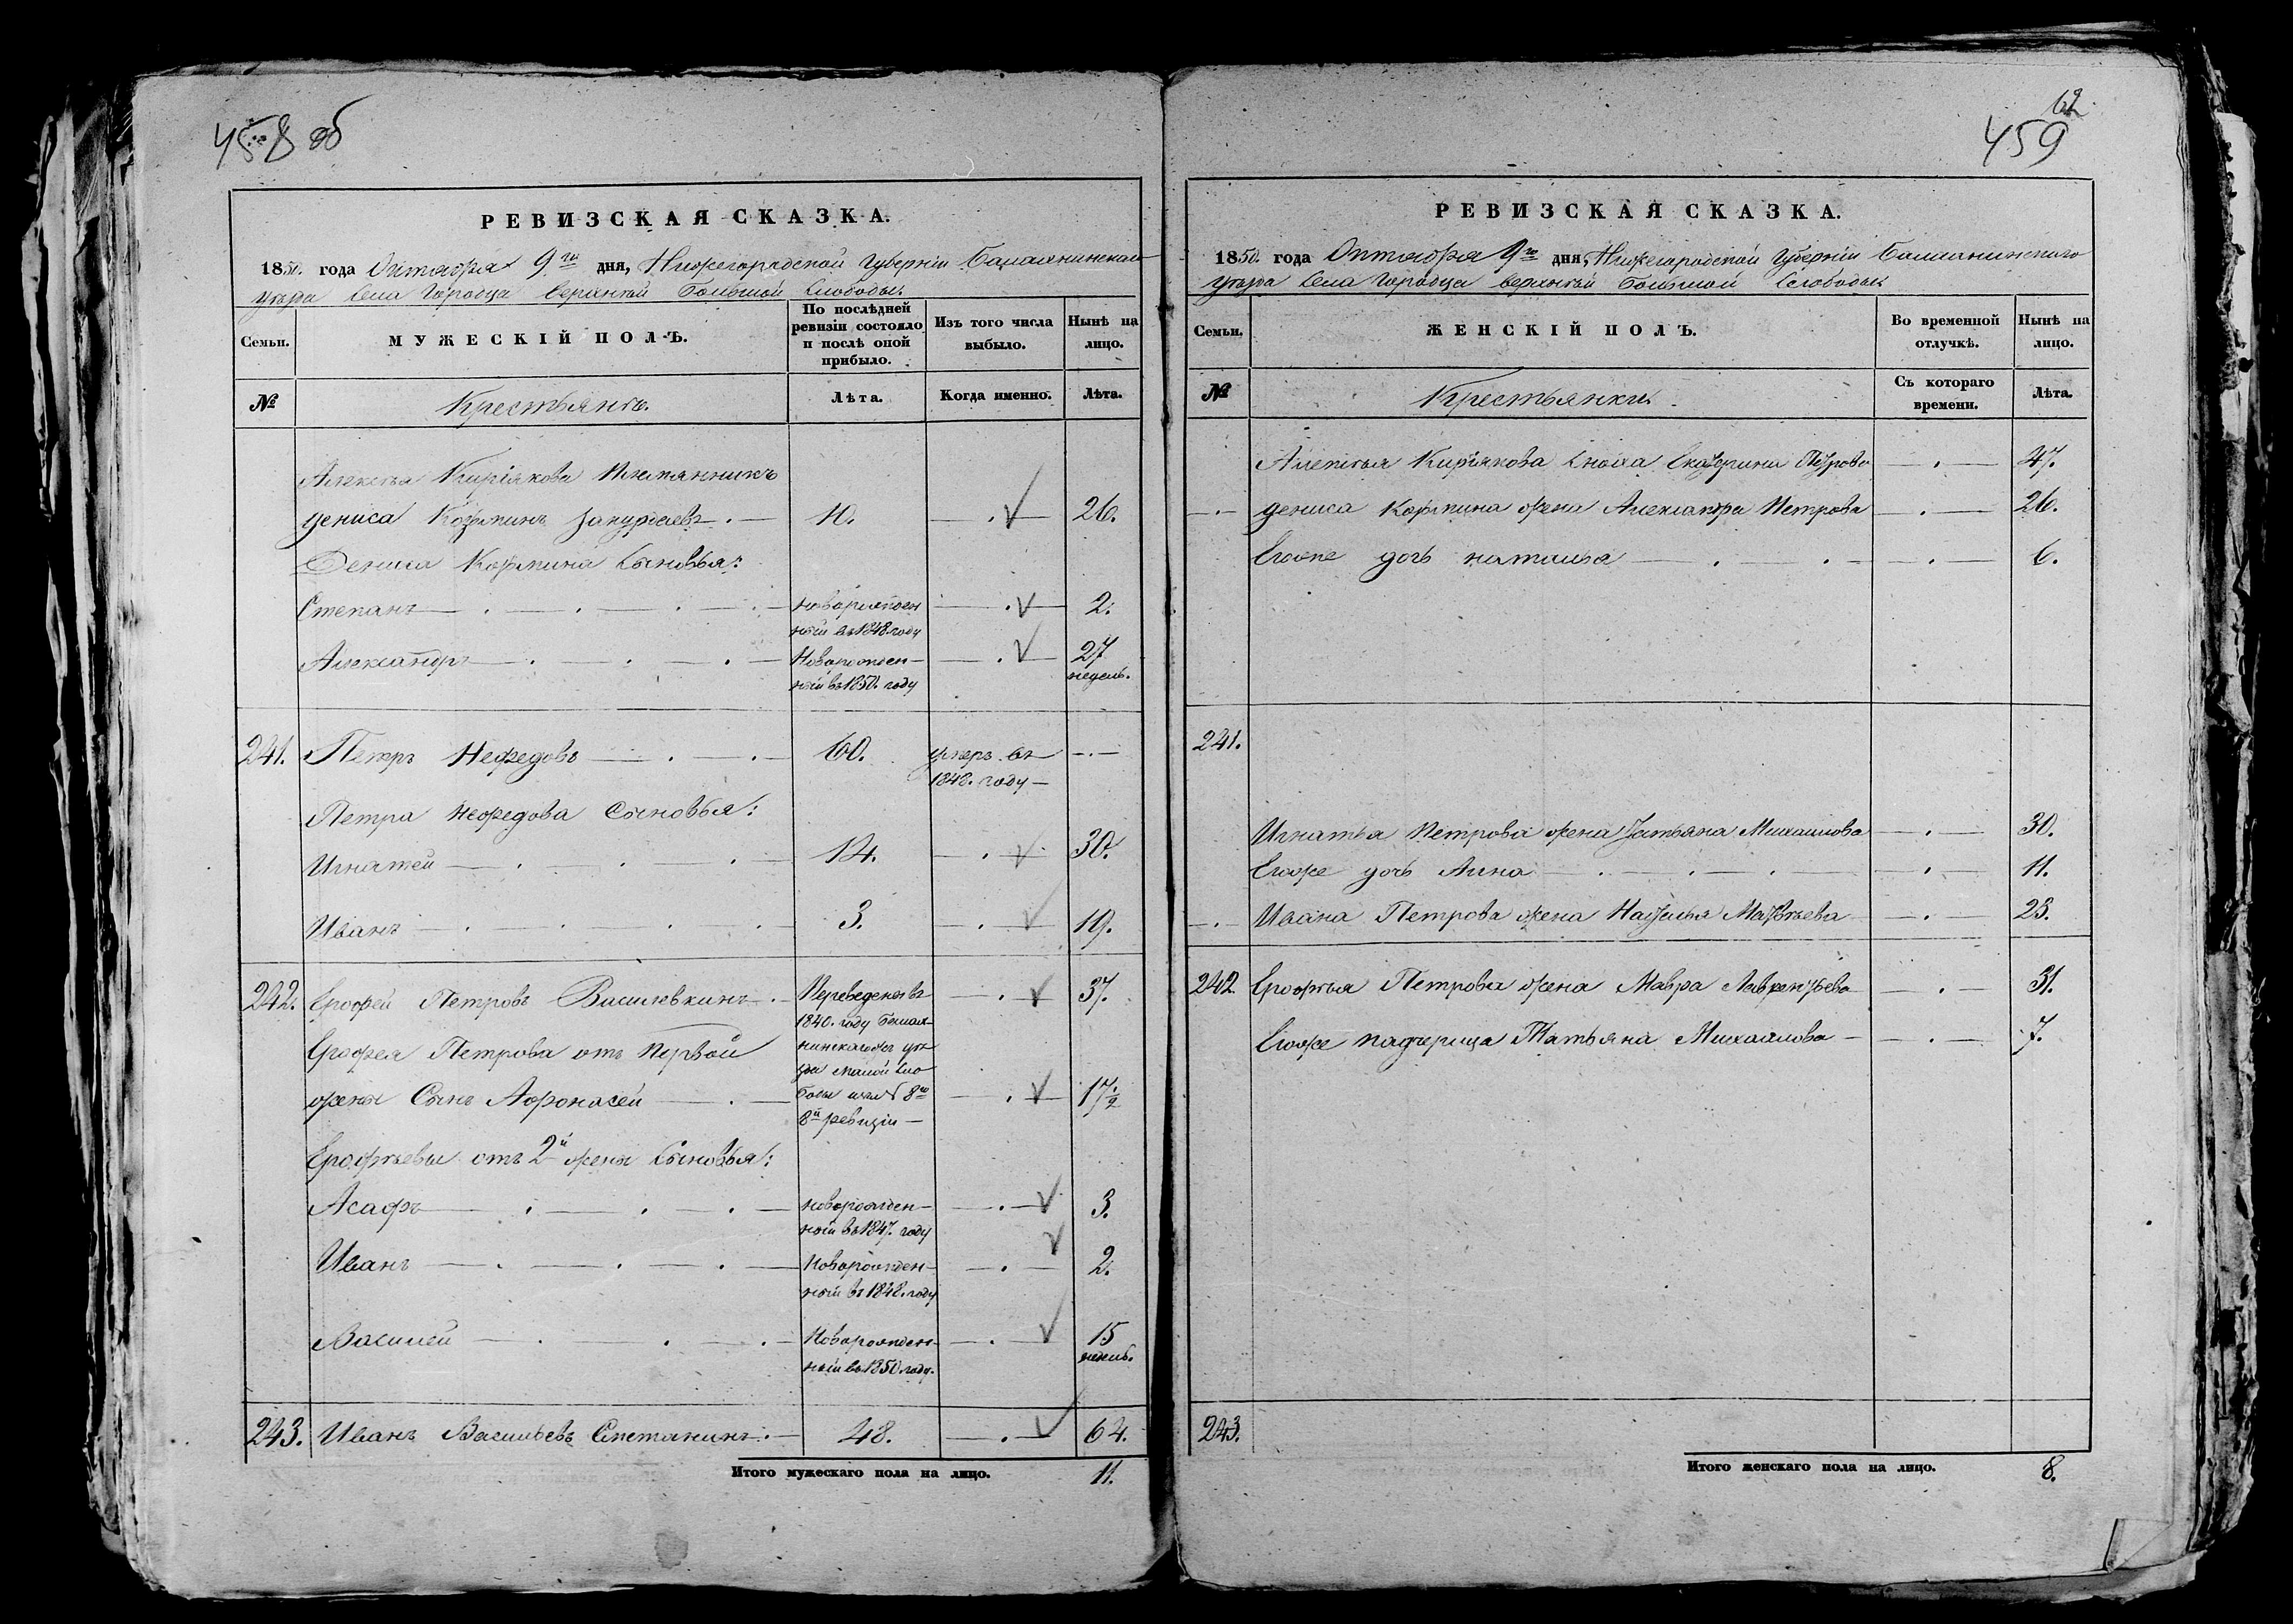 458 об
РЕВИЗСКАЯ СКАЗКА.
1850. года Октября 9го дня, Нижегородской Губернiи Балахнинскаго
уѣзда села Городца верхней большой слободы.
Семьи.
МУЖЕСКIЙ ПОЛЪ.
По послѣдней ревизiи состояло и послѣ оной прибыло.
Изъ того числа выбыло.
Нынѣ на лицо.
№
Крестьянъ.
Лѣта.
Когда именно.
Лѣта.
Алексѣя Кирiякова племянникъ
Дениса Козминъ — 10. — 26.
Дениса Козмина сыновья:
Степанъ — новорожденный въ 1848 году — 2.
Александръ — Новорожденный въ 1850. году — 27 недель.
241. Петръ Нефедовъ — 60. умеръ въ 1842. году —
Петра Нефедова Сыновья:
Игнатей — 14. — 30.
Иванъ — 3. — 19.
242. Ерофей Петровъ Василевкинъ — Переведенъ въ — 37.
1840. году Балах-
Ерофея Петрова отъ первой
нинскагожъ уѣ
зда малой сло
жены Сынъ Афонасей — боды 8й — 17 1/2
8й ревизiи —
Ерофѣевы отъ 2й жены сыновья:
Асафъ — новорожденный въ 1847. году — 3.
Иванъ — Новорожденный въ 1848. году — 2.
Василей — Новорожденный въ 1850 году. — 15 недель.
243. Иванъ Васильевъ Сметанинъ. — 48. — 64.
Итого мужескаго пола на лицо. 11.
62
459
РЕВИЗСКАЯ СКАЗКА.
1850. года Октября 9го дня, Нижегородской Губернiи Балахнинскаго
уѣзда села Городца верхней большой слободы
Семьи.
ЖЕНСКIЙ ПОЛЪ.
Во временной отлучкѣ.
Нынѣ на лицо.
№
Крестьянки.
Съ котораго времени.
Лѣта.
Алексѣя Кирiякова сноха Екатерина Петрова — 47.
Дениса Козмина жена Александра Петрова — 26.
Егоже дочь наталья — 6.
241.
Игнатья Петрова жена Татьяна Михаилова — 30.
Егоже дочь Анна — 11.
Ивана Петрова жена Наталья Матвѣева — 23.
242. Ерофѣя Петрова жена Мавра Лаврентьева — 31.
Егоже падчерица Татьяна Михаилова — 7.
243.
Итого женскаго пола на лицо. 8.